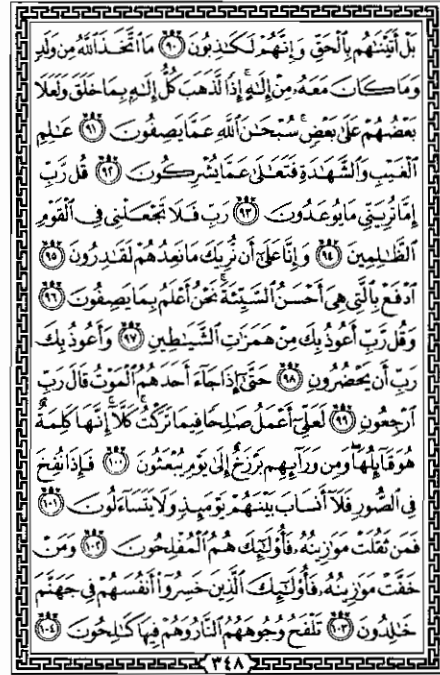 بَلْ أَتَيْنَٰهُم بِٱلْحَقِّ وَإِنَّهُمْ لَكَٰذِبُونَ ٩٠ مَا ٱتَّخَذَ ٱللَّهُ مِن وَلَدٍ
وَمَا كَانَ مَعَهُۥ مِنْ إِلَٰهٍ ۚ إِذًا لَّذَهَبَ كُلُّ إِلَٰهٍۭ بِمَا خَلَقَ وَلَعَلَا
بَعْضُهُمْ عَلَىٰ بَعْضٍ ۚ سُبْحَٰنَ ٱللَّهِ عَمَّا يَصِفُونَ ٩١ عَٰلِمِ
ٱلْغَيْبِ وَٱلشَّهَٰدَةِ فَتَعَٰلَىٰ عَمَّا يُشْرِكُونَ ٩٢ قُل رَّبِّ
إِمَّا تُرِيَنِّى مَا يُوعَدُونَ ٩٣ رَبِّ فَلَا تَجْعَلْنِى فِى ٱلْقَوْمِ
ٱلظَّٰلِمِينَ ٩٤ وَإِنَّا عَلَىٰٓ أَن نُّرِيَكَ مَا نَعِدُهُمْ لَقَٰدِرُونَ ٩٥
ٱدْفَعْ بِٱلَّتِى هِىَ أَحْسَنُ ٱلسَّيِّئَةَ ۚ نَحْنُ أَعْلَمُ بِمَا يَصِفُونَ ٩٦
وَقُل رَّبِّ أَعُوذُ بِكَ مِنْ هَمَزَٰتِ ٱلشَّيَٰطِينِ ٩٧ وَأَعُوذُ بِكَ
رَبِّ أَن يَحْضُرُونِ ٩٨ حَتَّىٰٓ إِذَا جَآءَ أَحَدَهُمُ ٱلْمَوْتُ قَالَ رَبِّ
ٱرْجِعُونِ ٩٩ لَعَلِّىٓ أَعْمَلُ صَٰلِحًا فِيمَا تَرَكْتُ ۚ كَلَّآ ۚ إِنَّهَا كَلِمَةٌ
هُوَ قَآئِلُهَا ۖ وَمِن وَرَآئِهِم بَرْزَخٌ إِلَىٰ يَوْمِ يُبْعَثُونَ ١٠٠ فَإِذَا نُفِخَ
فِى ٱلصُّورِ فَلَآ أَنسَابَ بَيْنَهُمْ يَوْمَئِذٍ وَلَا يَتَسَآءَلُونَ ١٠١
فَمَن ثَقُلَتْ مَوَٰزِينُهُۥ فَأُو۟لَٰٓئِكَ هُمُ ٱلْمُفْلِحُونَ ١٠٢ وَمَنْ
خَفَّتْ مَوَٰزِينُهُۥ فَأُو۟لَٰٓئِكَ ٱلَّذِينَ خَسِرُوٓا۟ أَنفُسَهُمْ فِى جَهَنَّمَ
خَٰلِدُونَ ١٠٣ تَلْفَحُ وُجُوهَهُمُ ٱلنَّارُ وَهُمْ فِيهَا كَٰلِحُونَ ١٠٤
٣٤٨